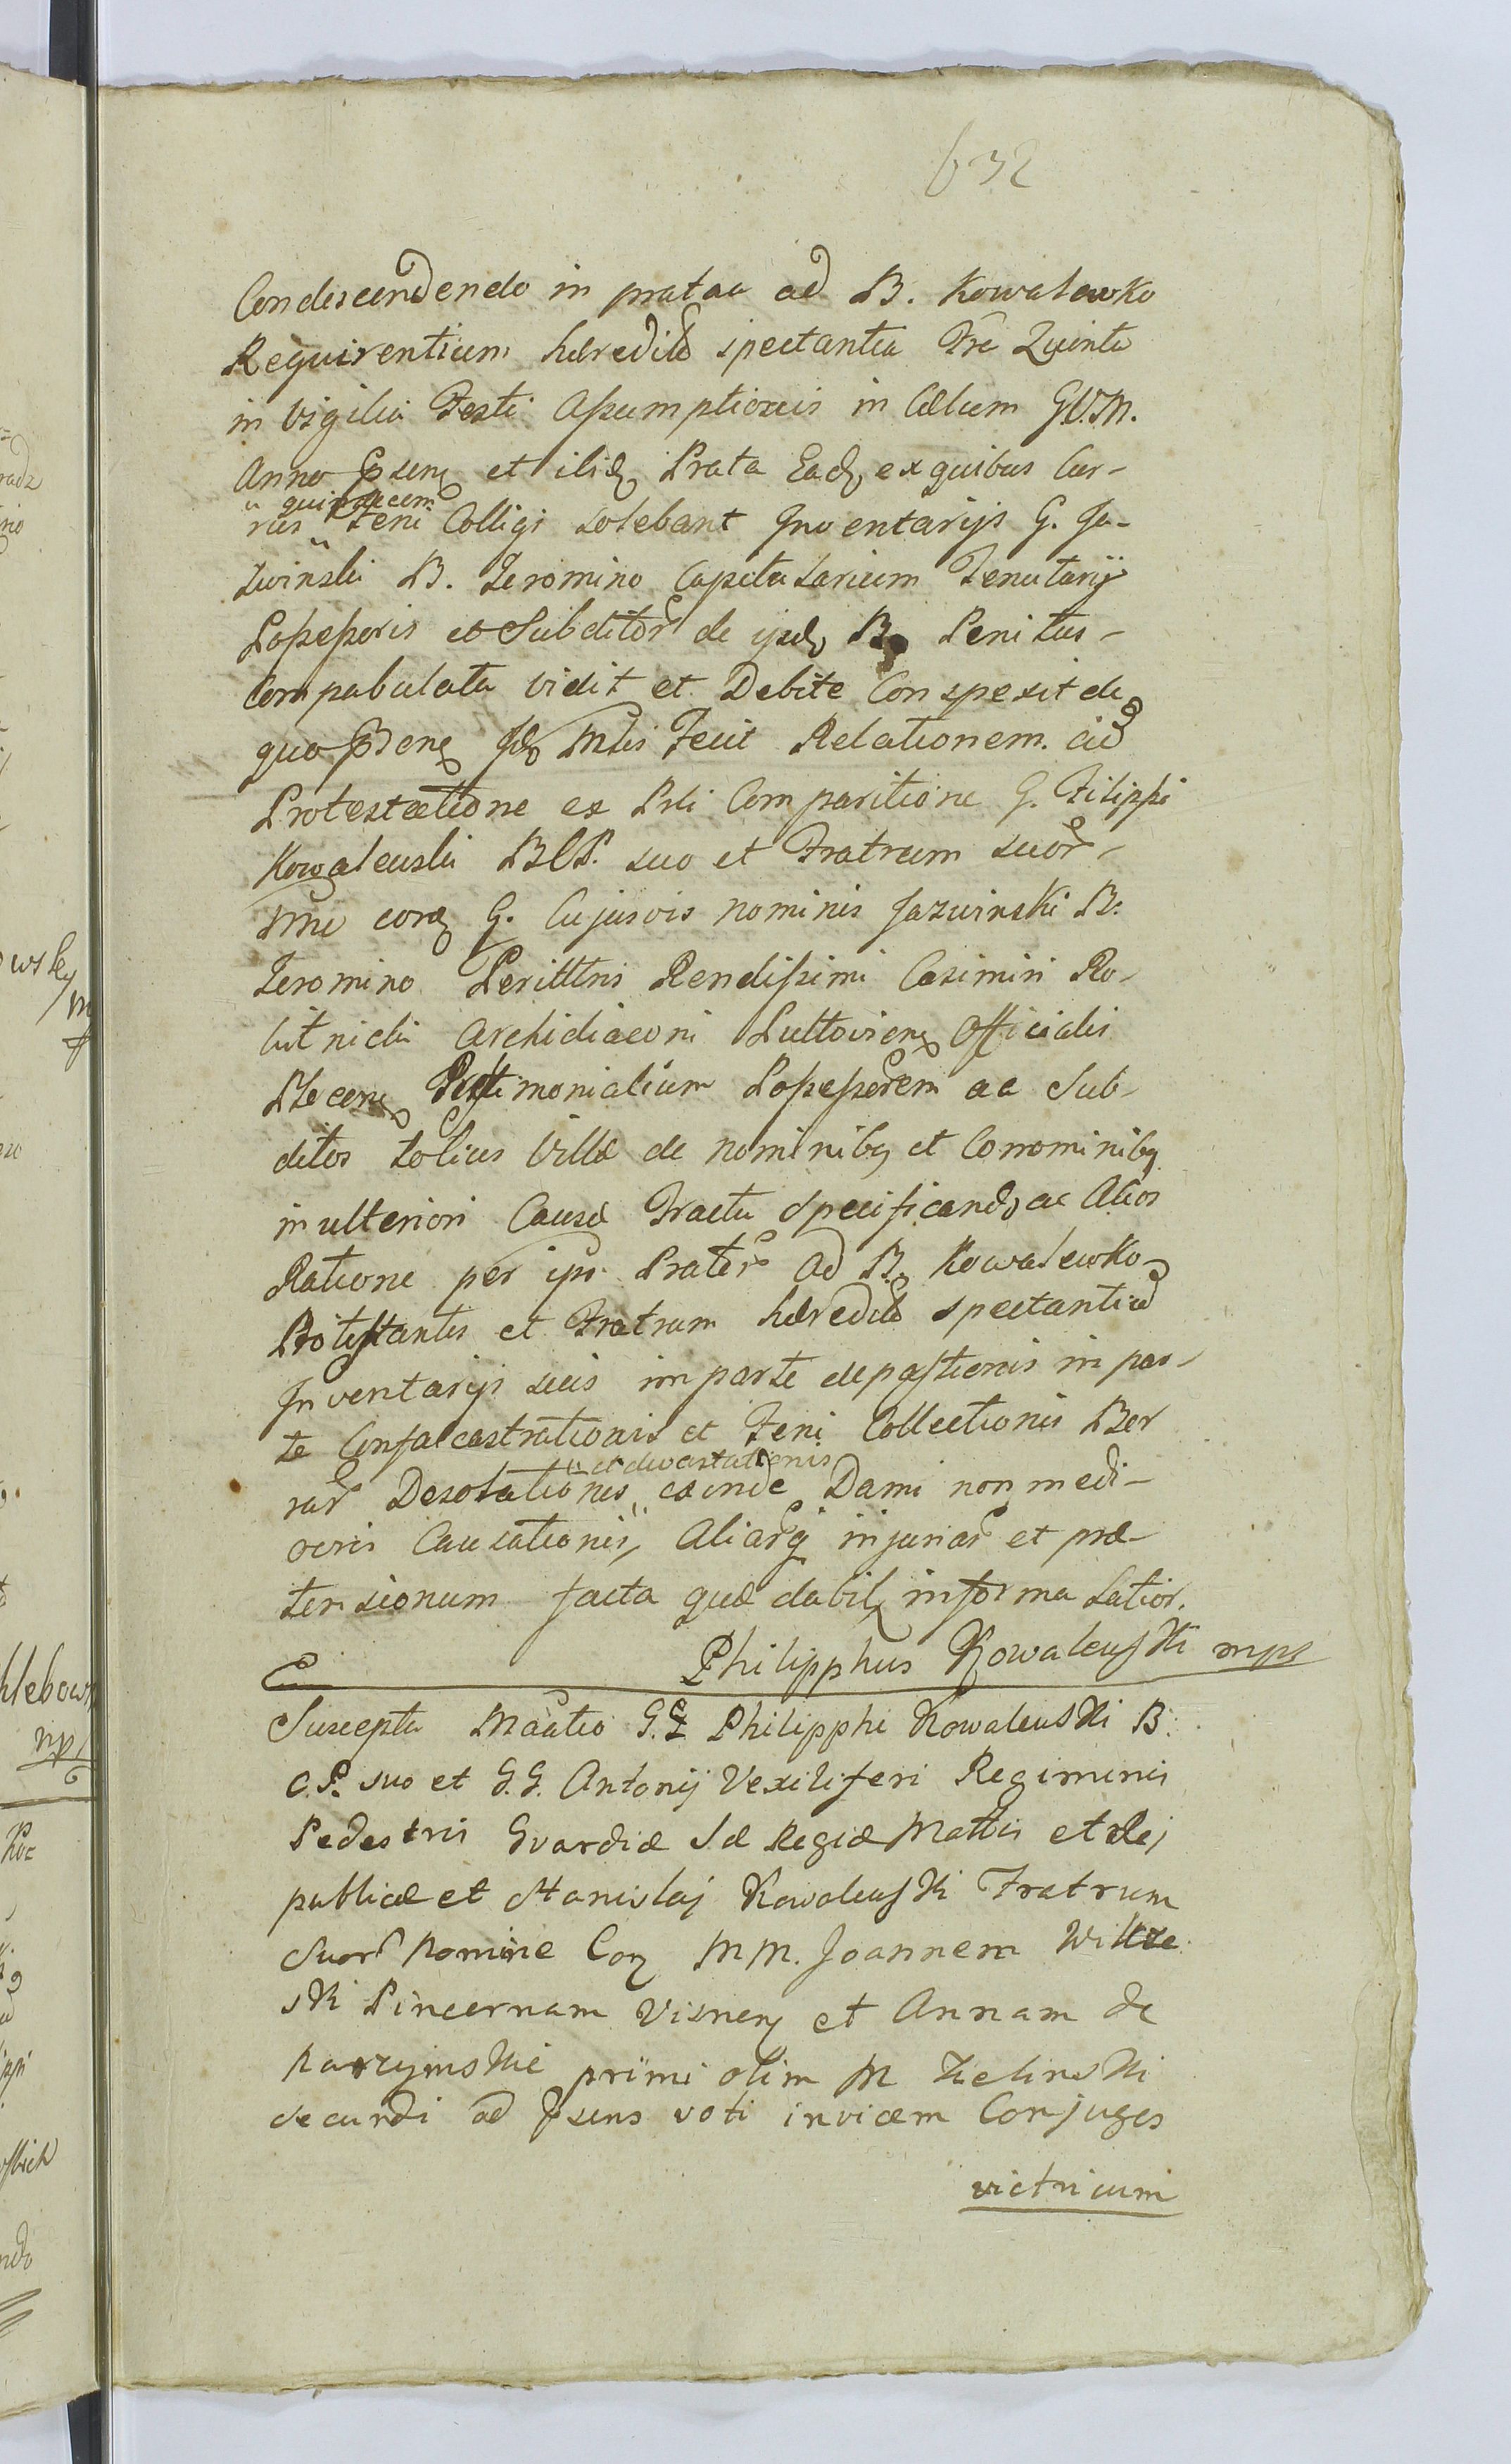 632
Condescendendo in prataa ad B. Kowalewko
Requirentium hæredit spectantia Fra Quinta
in Vigilia Festi Assumptionis in Cælum G.V.M.
Anno Psenq et ibidq Prata Eadq ex quibus Cur-
rus „ quindecem „ Feni Colligi solebant Inventarijs G. Ja-
zwinski B. Jeromino Capitularium Tenutarij
Possessoris et Subditor de ijsdq B. Penitus -
Compabulata vidit et Debite Conspexit de
quo Psenq Idq Mlis Fecit Relationem. cu
Protestatione ex Prli Comparitione G. Filippi
Kowalewski B.C.P. suo et Fratrum suor -
Nne corq G. Cujusvis nominis Jazwinski B.
Jeromino Perilltris Rendissimi Casimiri Ro-
lutnicki Archidiaconi Pultovienq Officialis
Plocenq Testimonialium Possessorem ac Sub-
ditos totius Villæ de nominibq et Connominibq
in ulteriori Causæ Tractu specificando ac Alios
Ratione per ipsos Prator ad B. Kowalewko
Protestantis et Fratrum hæredit spectantiu
Inventarijs suis in parte depastionis in par-
te Confalcastrationis et Feni Collectionis Ber
rar Desolationis „ et devastationis „ exinde Damni non medi-
ocris Causationis, Aliarq injuriar et præ-
tensionum facta quæ dabitq in forma latior.
Philipphus Kowalewski mps
Suscepta Maatio G. Philipphi Kowalewski B.
C.P. suo et G.G. Antonij Vexiliferi Regiminis
Pedestris Gvardiæ Sæ Regiæ Mattis et Rei
publicæ et Stanislaj Kowalewski Fratrum
Suor Nomine Corq M.M. Joannem Wilkze
ski Pincernam Visnenq et Annam de
Narzymskie primi olim M Zielinski
secundi ad Psens voti invicem Conjuges
victricum